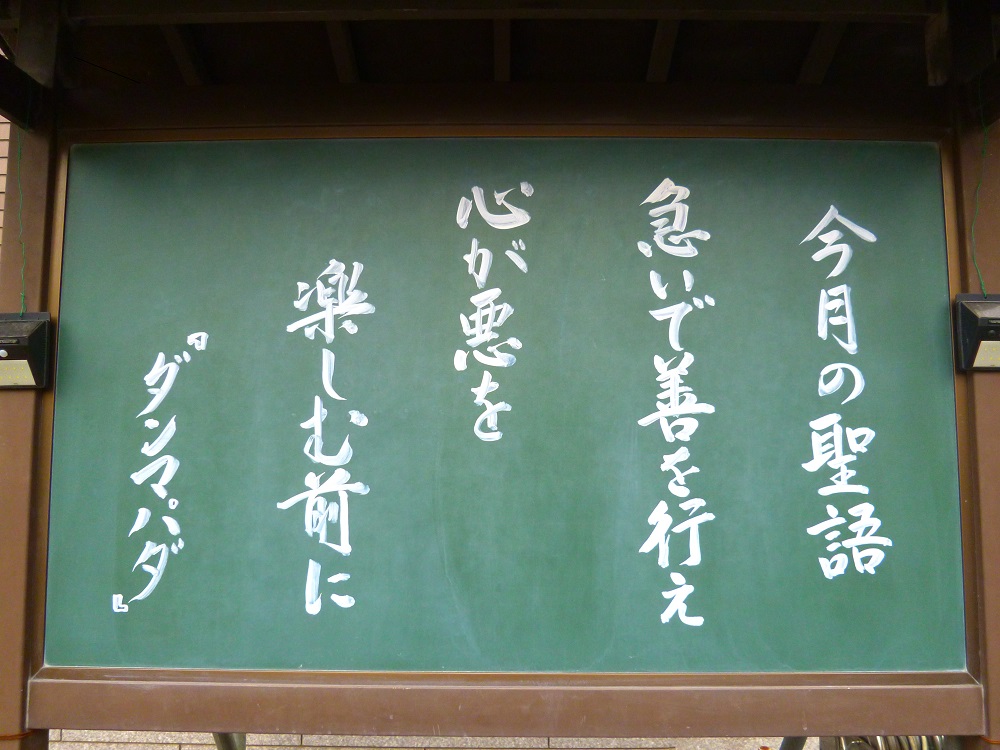 今月の聖語
急いで善を行え
心が悪を
楽しむ前に
『ダンマパダ』